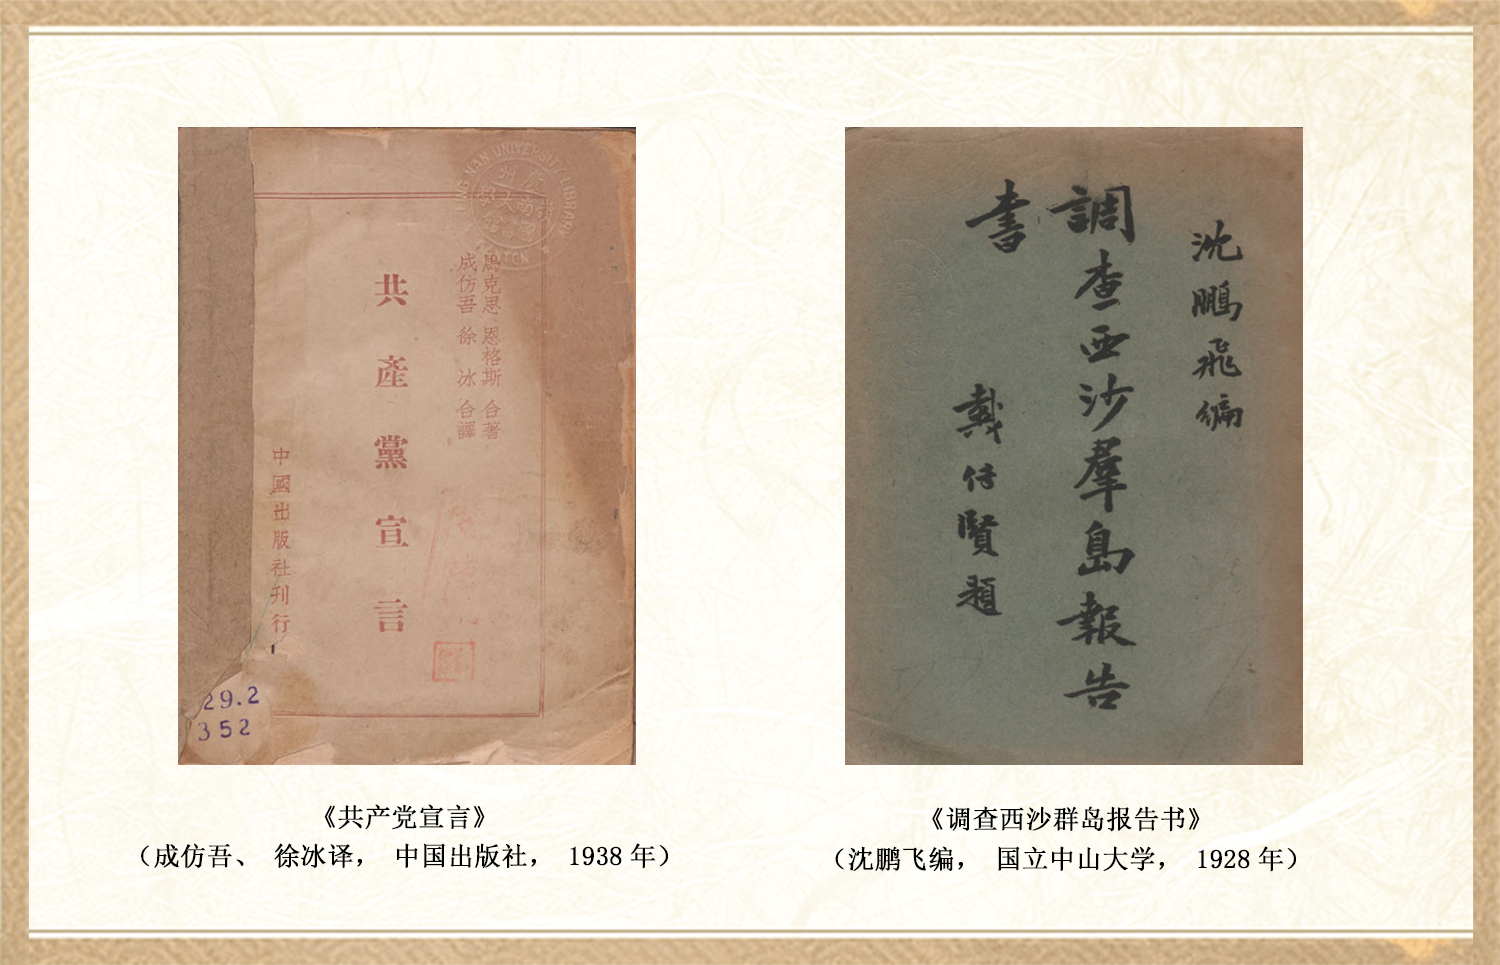 LING NAN UNIVERSITY LIBRARY
CANTON
馬克思 恩格斯 合著
成仿吾 徐冰 合譯
共產黨宣言
中國出版社刊行
29.2
352
沈鵬飛編
調查西沙羣島報告
書
戴傳賢題
《共产党宣言》
（成仿吾、 徐冰译， 中国出版社， 1938 年）
《调查西沙群岛报告书》
（沈鹏飞编， 国立中山大学， 1928 年）